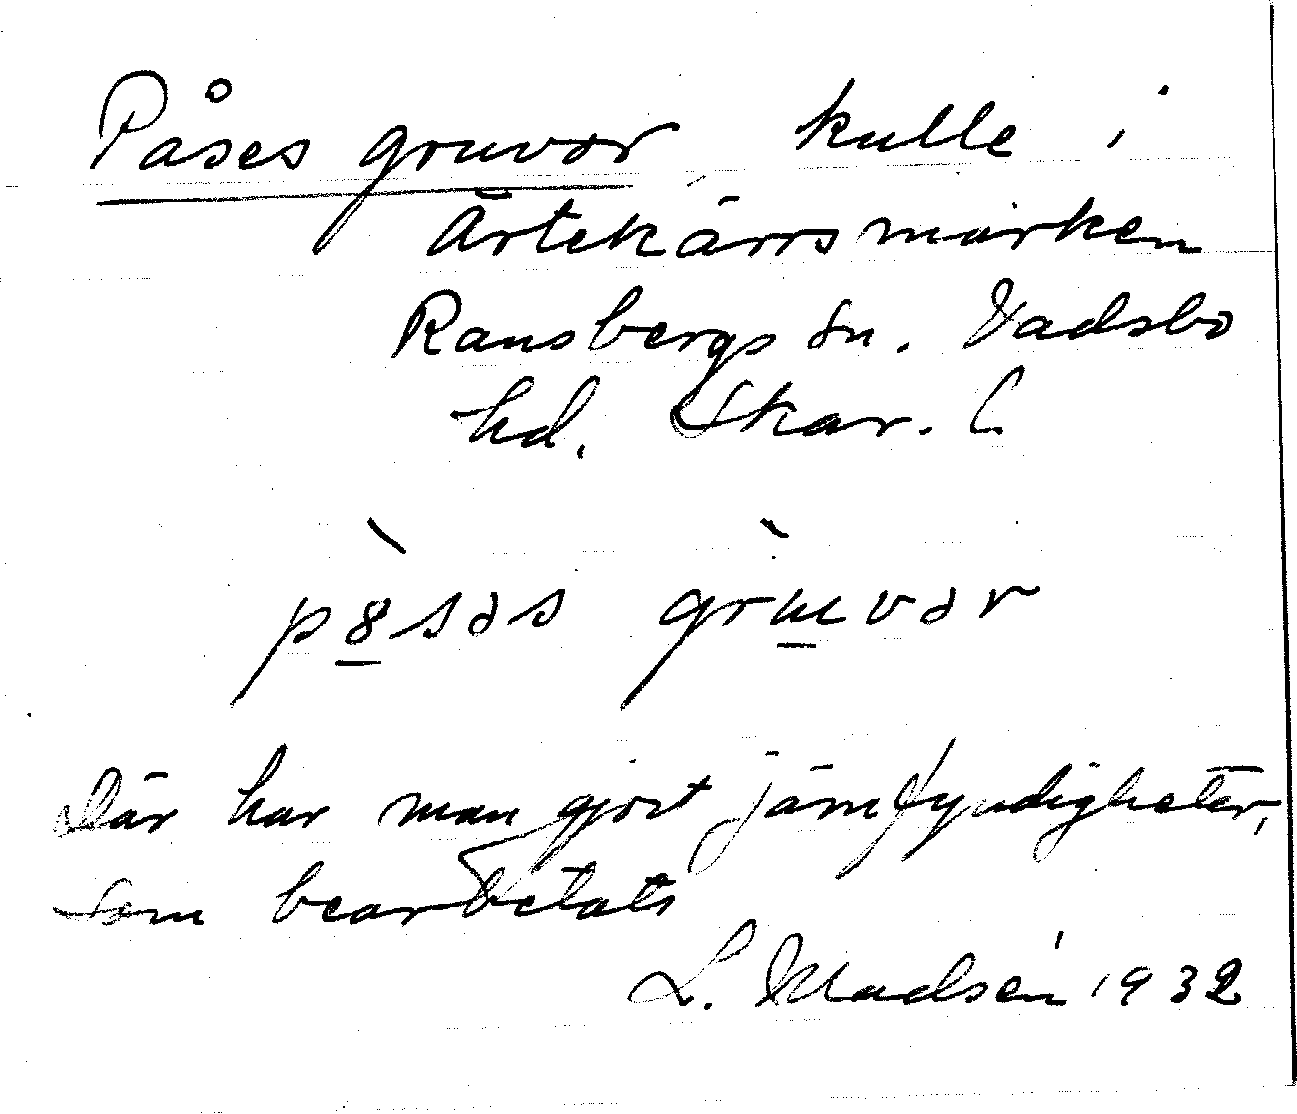 Påses gruvor kulle i
Ärtekärrsmarken
Ransbergs sn. Vadsbo
hd. Skar. l.
pò̱səs grùvər
Där har man gjort järnfyndigheter,
som bearbetats
L. Madsén 1932